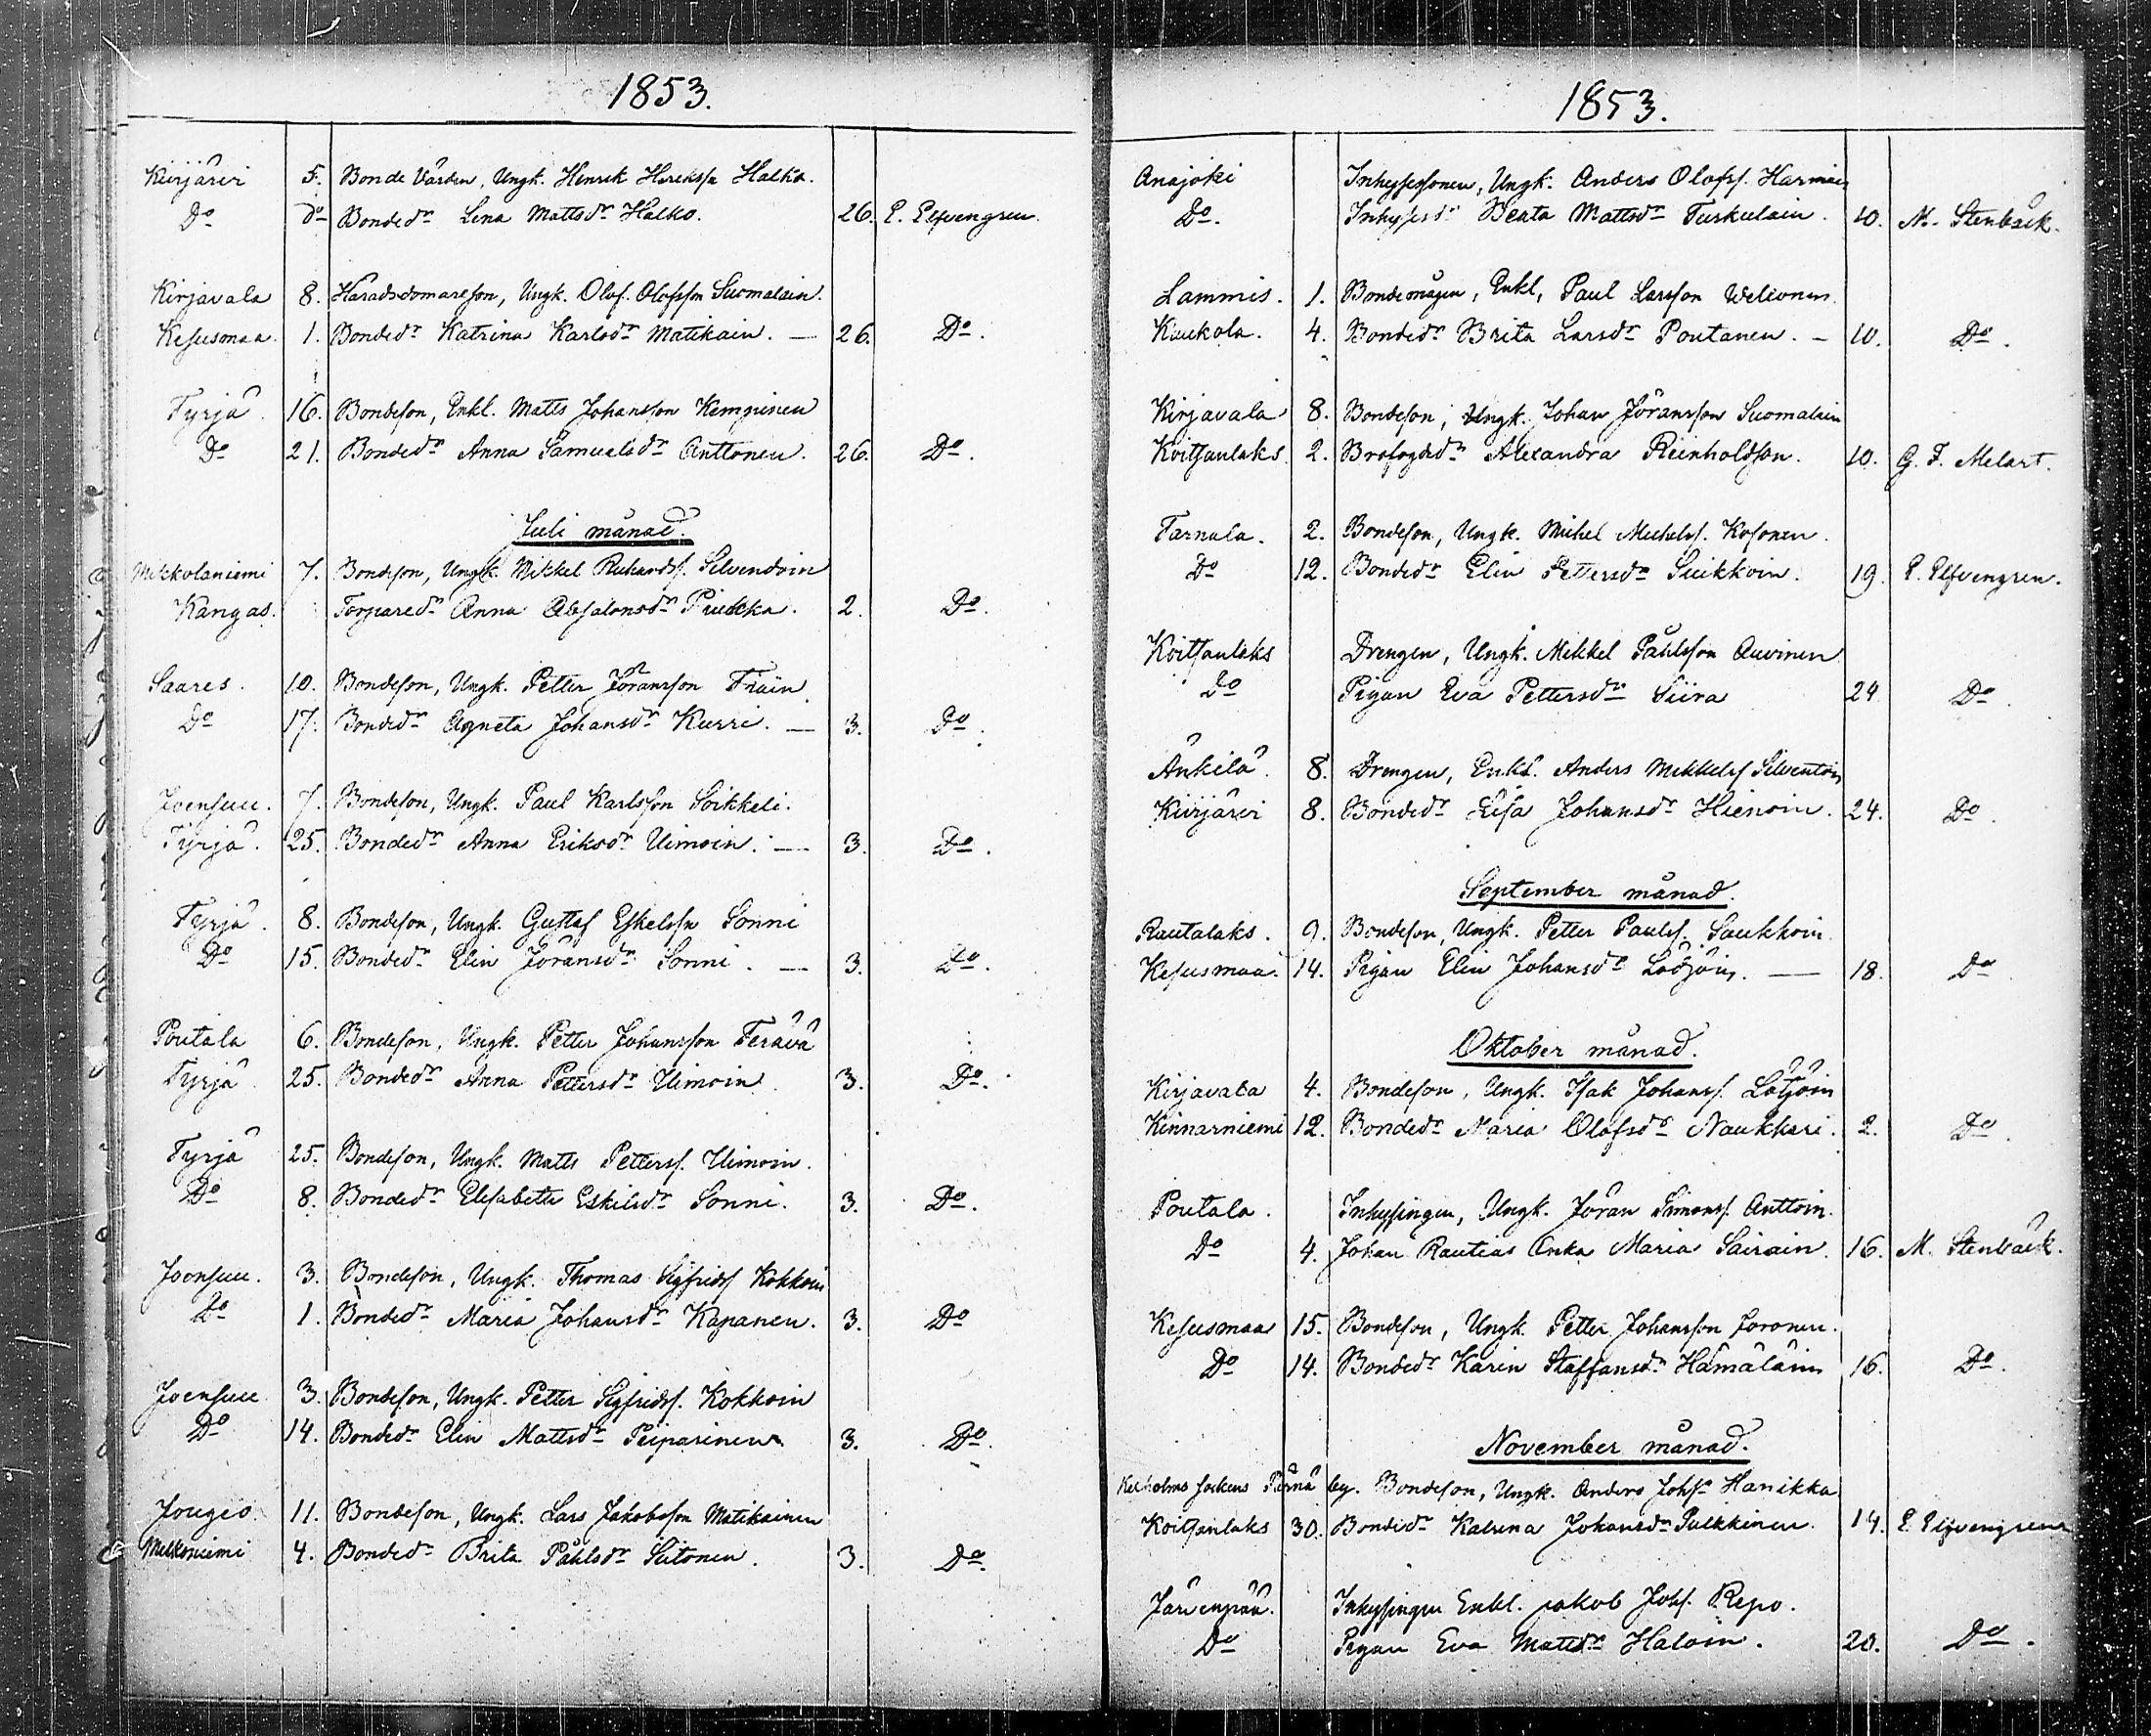 1853.
Kirjäseri 5. Bonde Värden, Ungk. Henrik Henrikssn Halko.
Do do Bondedr Lena Mattsdr Halko. 26. P. Elfvengren.
Kirjavala 8. Häradsdomareson, Ungk. Olof Olofsson Suomalain.
Kesusmaa. 1. Bondedr Katrina Karlsdr Matikain. — 26. Do.
Tyrjä. 16. Bondeson, Enkl. Matts Johansson Kempinen
Do 21. Bondedr Anna Samuelsdr Anttonen. 26. Do.
Juli månad.
Mikkolaniemi 7. Bondeson, Ungk. Mikkel Silvendoin
Kangas. Torparedr Anna Absalonsdr 2. Do.
Saares. 10. Bondeson, Ungk. Petter Jöransson
Do 17. Bondedr Agneta Johansdr Kurri. — 3. Do.
Joensuu. 7. Bondeson, Ungk. Paul Karlsson Soikkeli.
Tyrjä. 25. Bondedr Anna Eriksdr Uimoin. — 3. Do.
Tyrjä. 8. Bondeson, Ungk. Gustaf Eskelssn Sonni
Do 15. Bondedr Elin Jöransdr Sonni. — 3. Do.
Poutala 6. Bondeson, Ungk. Petter Johansson Terävä
Tyrjä 25. Bondedr Anna Pettersdr Uimoin. 3. Do.
Tyrjä 25. Bondeson, Ungk. Matts Petterss. Uimoin.
Do 8. Bondedr Elisabeth Eskilsdr Sonni. 3. Do.
Joensuu. 3. Bondeson, Ungk. Thomas Sigfridss Kokkoin
Do 1. Bondedr Maria Johansdr Kapanen. 3. Do
Joensuu 3. Bondeson, Ungk. Petter Sigfridss. Kokkoin
Do 14. Bondedr Elin Mattsdr Peiparinen 3. Do.
Jougio. 11. Bondeson, Ungk. Lars Jakobsson Matikainen
4. Bondedr Brita Påhlsdr 3. Do.
1853.
Anajoki Ungk. Anders Olofss.
Do. Beata Mattsdr Tuskulain. 10. M. Stenbäck.
Lammis. 1. Bondemågen, Enkl, Paul Larsson Welionen
Kaukola. 4. Bondedr Brita Larsdr Poutanen. – 10. Do.
Kirjavala 8. Bondeson, Ungk. Johan Jöransson Suomalain
Koitsanlaks 2. Brofogdedr Alexandra Reinholdson. 10. G. F. Melart.
Tarnala. 2. Bondeson, Ungk. Michel Michelss. Kosonen.
Do 12. Bondedr Elin Pettersdr Siikkoin. 19. P. Elfvengren.
Koitsanlaks Drengen, Ungk. Mikkel Påhlsson Auvinen
Do Pigan Eva Pettersdr Siira 24 Do.
Änkilä. 8. Drengen, Enkl. Anders Mikkelss Silventoin
Kirjäseri 8. Bondedr Lisa Johansdr Hienoin. 24. Do.
September månad.
Rautalaks. 9. Bondeson, Ungk. Petter Paulss. Saukkoin.
Kesusmaa. 14. Pigan Elin Johansdr Lötjöin. — 18. Do
Oktober månad.
Kirjavala 4. Bondeson, Ungk. Isak Johanss. Lötjöin
Kinnarniemi 12. Bondedr Maria Olofsdr Naukkari. 2. Do.
Poutala. Inhysingen, Ungk. Jöran Simonss. Anttoin.
Do 4. Johan Rautias Enka Maria Sairain. 16. M. Stenbäck.
Kesusmaa 15. Bondeson, Ungk. Petter Johansson Joronen.
Do 14. Bondedr Karin Staffansdr Hämäläin 16. Do.
November månad.
Kexholms Sockens Pärnä by. Bondeson, Ungk. Anders Johssn Hanikka
Koitsanlaks 30. Bondedr Katrina Johansdr Pulkkinen. 14. P. Elfvengren
Järvenpää. Inhysingen Enkl. Jakob Johss. Repo.
Do Pigan Eva Mattsdr Haloin. 20. Do.